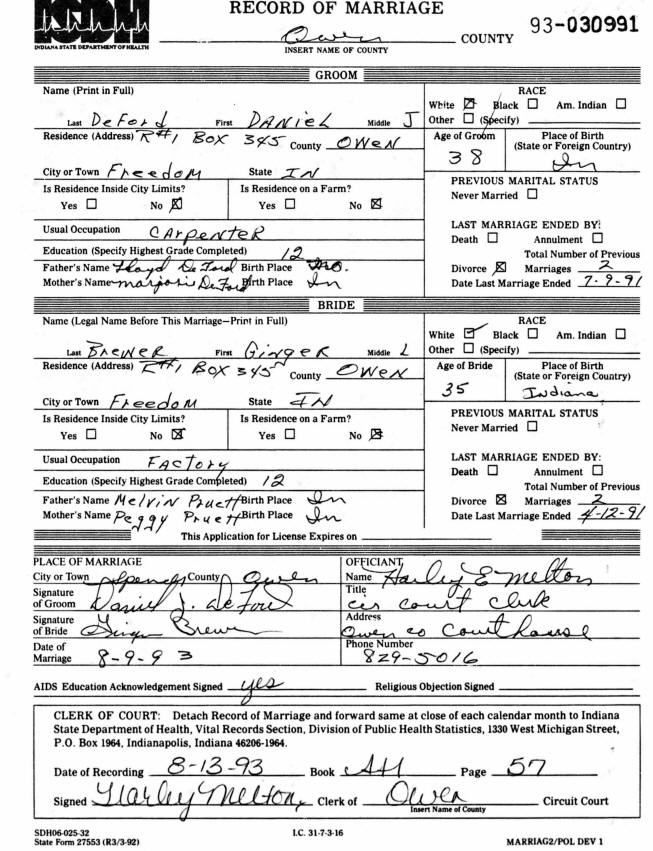 RECORD OF MARRIAGE
Owen COUNTY 93-030991
INSERT NAME OF COUNTY
INDIANA STATE DEPARTMENT OF HEALTH
GROOM
Name (Print in Full)
Last DeFord First DANIEL Middle J
RACE
White ☒ Black ☐ Am. Indian ☐
Other ☐ (Specify)
Residence (Address) R#1 BOX 345 County OWEN
City or Town Freedom State IN
Age of Groom 38
Place of Birth (State or Foreign Country) In
Is Residence Inside City Limits? Yes ☐ No ☒
Is Residence on a Farm? Yes ☐ No ☒
PREVIOUS MARITAL STATUS
Never Married ☐
Usual Occupation CArpenTER
Education (Specify Highest Grade Completed) 12
Father's Name Lloyd DeFord Birth Place
Mother's Name marjorie DeFord Birth Place In
LAST MARRIAGE ENDED BY:
Death ☐ Annulment ☐
Total Number of Previous
Divorce ☒ Marriages 2
Date Last Marriage Ended 7-9-91
BRIDE
Name (Legal Name Before This Marriage—Print in Full)
Last BREWER First GingeR Middle L
RACE
White ☑ Black ☐ Am. Indian ☐
Other ☐ (Specify)
Residence (Address) R#1 BOX 345 County OWEN
City or Town Freedom State IN
Age of Bride 35
Place of Birth (State or Foreign Country) Indiana
Is Residence Inside City Limits? Yes ☐ No ☒
Is Residence on a Farm? Yes ☐ No ☒
PREVIOUS MARITAL STATUS
Never Married ☐
Usual Occupation FACTORY
Education (Specify Highest Grade Completed) 12
Father's Name Melvin Pruett Birth Place In
Mother's Name Peggy Pruett Birth Place In
LAST MARRIAGE ENDED BY:
Death ☐ Annulment ☐
Total Number of Previous
Divorce ☒ Marriages 2
Date Last Marriage Ended 4-12-91
This Application for License Expires on
PLACE OF MARRIAGE
City or Town Spencer County Owen
Signature of Groom Daniel J. DeFord
Signature of Bride Ginger Brewer
Date of Marriage 8-9-93
OFFICIANT
Name Harley E Melton
Title cir court clerk
Address Owen co Courthouse
Phone Number 829-5016
AIDS Education Acknowledgement Signed yes Religious Objection Signed
CLERK OF COURT: Detach Record of Marriage and forward same at close of each calendar month to Indiana
State Department of Health, Vital Records Section, Division of Public Health Statistics, 1330 West Michigan Street,
P.O. Box 1964, Indianapolis, Indiana 46206-1964.
Date of Recording 8-13-93 Book Page 57
Signed Harley Melton, Clerk of Owen Circuit Court
Insert Name of County
SDH06-025-32
State Form 27553 (R3/3-92)
I.C. 31-7-3-16
MARRIAG2/POL DEV 1